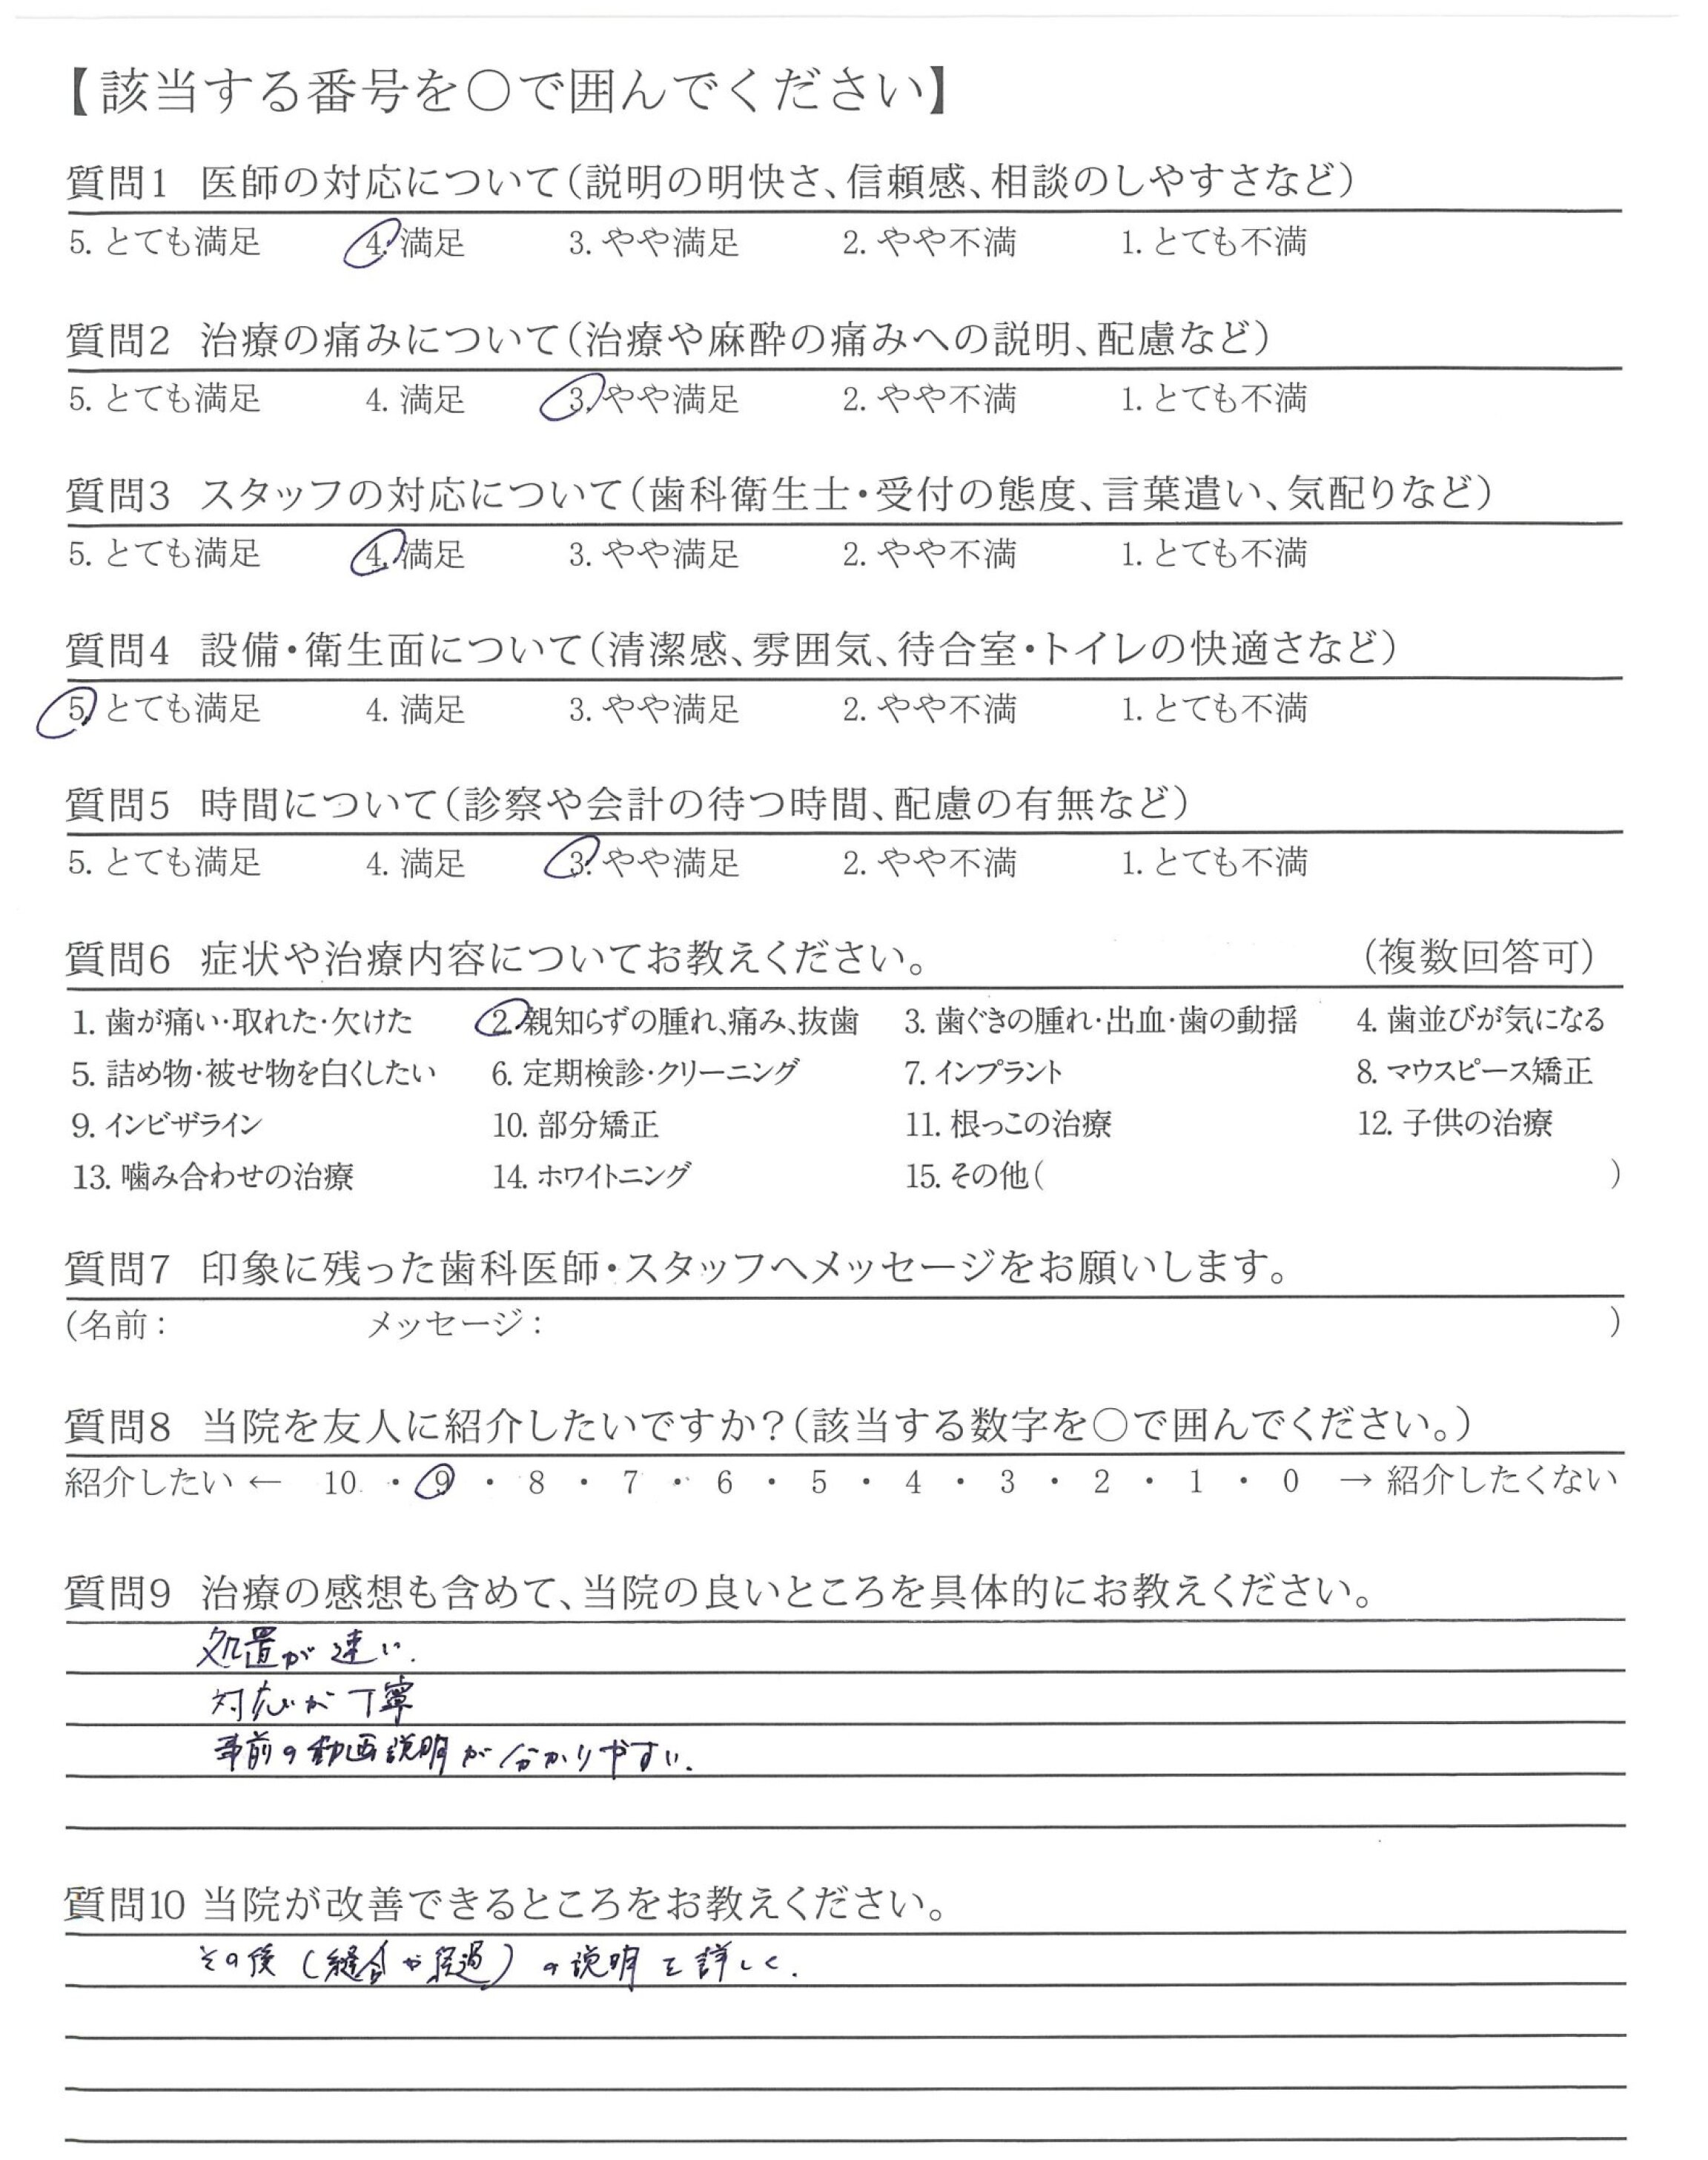 【該当する番号を〇で囲んでください】
質問1 医師の対応について(説明の明快さ、信頼感、相談のしやすさなど)
5. とても満足 4. 満足 3. やや満足 2. やや不満 1. とても不満
質問2 治療の痛みについて(治療や麻酔の痛みへの説明、配慮など)
5. とても満足 4. 満足 3. やや満足 2. やや不満 1. とても不満
質問3 スタッフの対応について(歯科衛生士・受付の態度、言葉遣い、気配りなど)
5. とても満足 4. 満足 3. やや満足 2. やや不満 1. とても不満
質問4 設備・衛生面について(清潔感、雰囲気、待合室・トイレの快適さなど)
5. とても満足 4. 満足 3. やや満足 2. やや不満 1. とても不満
質問5 時間について(診察や会計の待つ時間、配慮の有無など)
5. とても満足 4. 満足 3. やや満足 2. やや不満 1. とても不満
質問6 症状や治療内容についてお教えください。 (複数回答可)
1. 歯が痛い・取れた・欠けた 2. 親知らずの腫れ、痛み、抜歯 3. 歯ぐきの腫れ・出血・歯の動揺 4. 歯並びが気になる
5. 詰め物・被せ物を白くしたい 6. 定期検診・クリーニング 7. インプラント 8. マウスピース矯正
9. インビザライン 10. 部分矯正 11. 根っこの治療 12. 子供の治療
13. 噛み合わせの治療 14. ホワイトニング 15. その他( )
質問7 印象に残った歯科医師・スタッフへメッセージをお願いします。
(名前: メッセージ: )
質問8 当院を友人に紹介したいですか?(該当する数字を〇で囲んでください。)
紹介したい ← 10 ・ 9 ・ 8 ・ 7 ・ 6 ・ 5 ・ 4 ・ 3 ・ 2 ・ 1 ・ 0 → 紹介したくない
質問9 治療の感想も含めて、当院の良いところを具体的にお教えください。
処置が速い.
対応が丁寧
事前の動画説明が分かりやすい.
質問10 当院が改善できるところをお教えください。
その後(縫合や経過)の説明を詳しく.